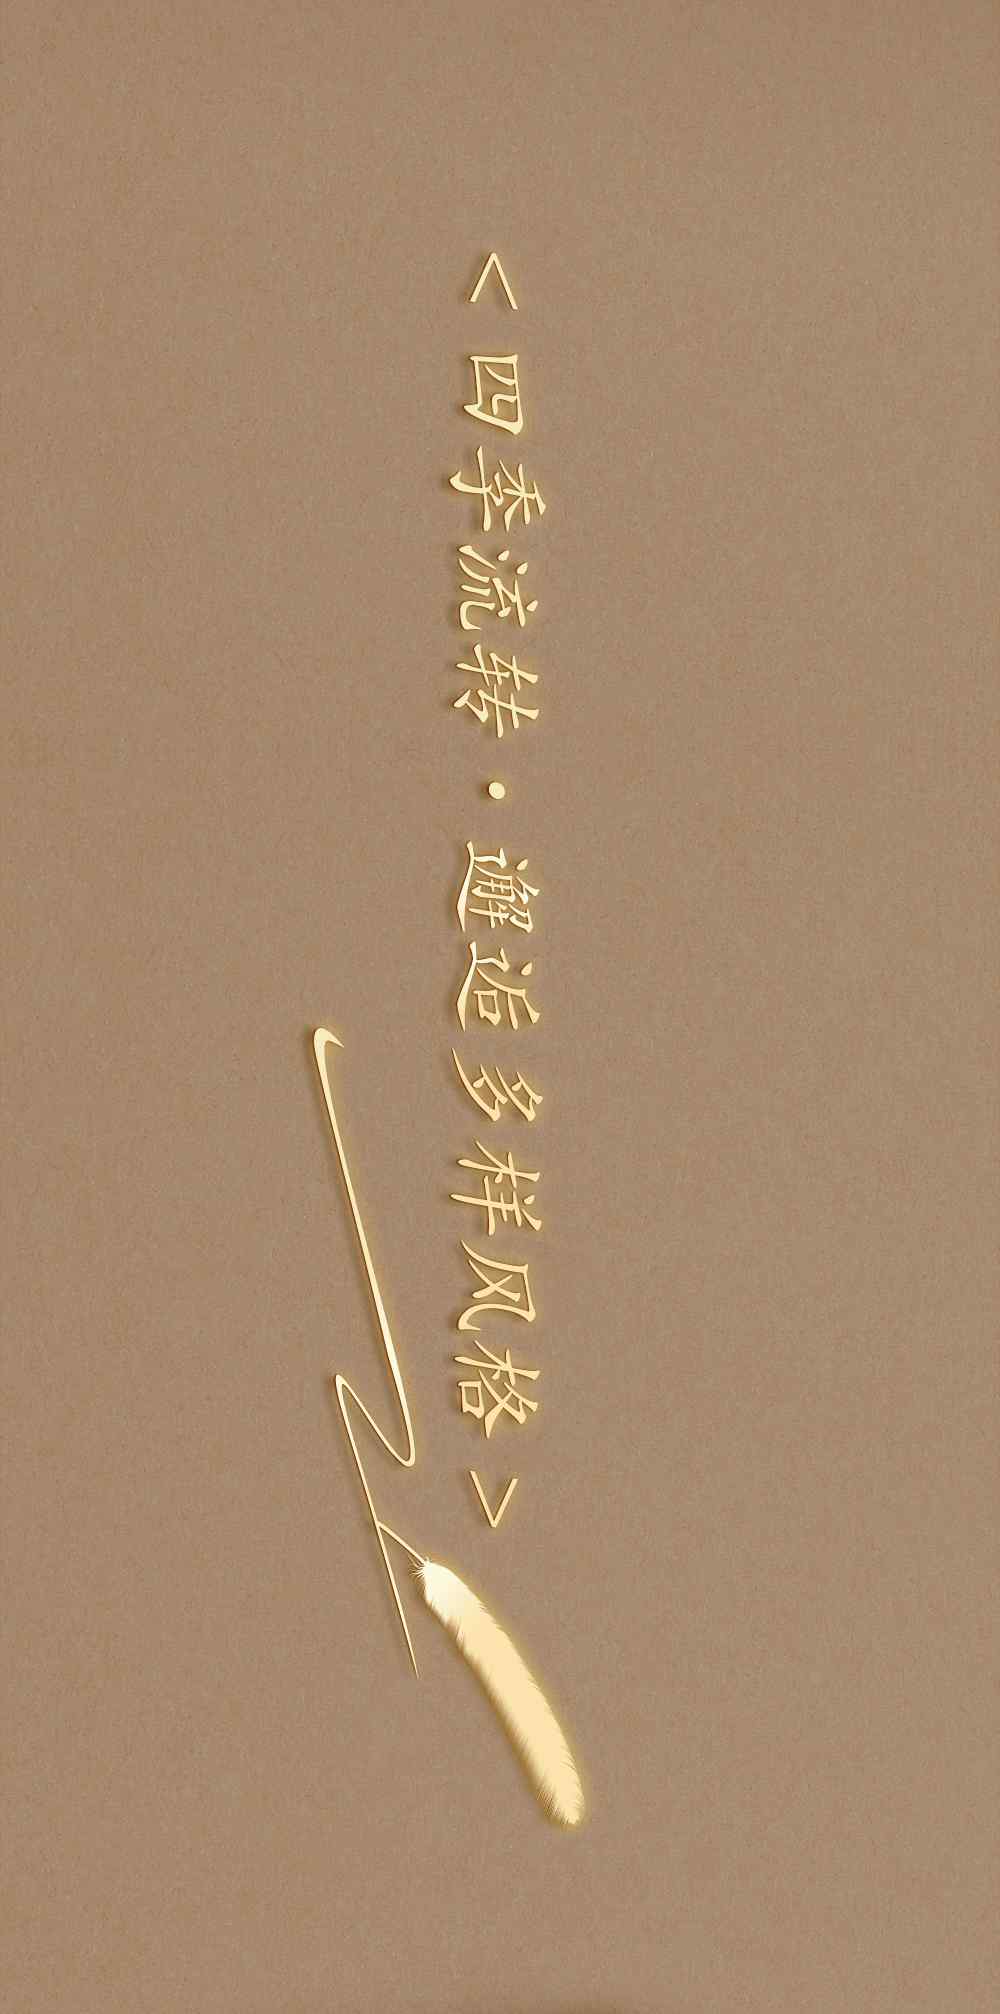 < 四季流转 · 邂逅多样风格 >